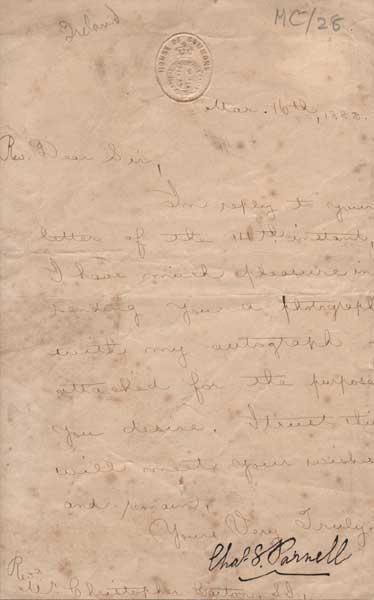 Ireland
MC/28.
HOUSE OF COMMONS
Mar. 16th, 1888.
Rev. Dear Sir,
In reply to your
letter of the 14th instant,
I have much pleasure in
sending you a photograph
with my autograph
attached for the purpose
you desire. I trust this
will meet your wishes
and remain,
Yours Very Truly,
Chas. S. Parnell
Revd
Mr Christopher